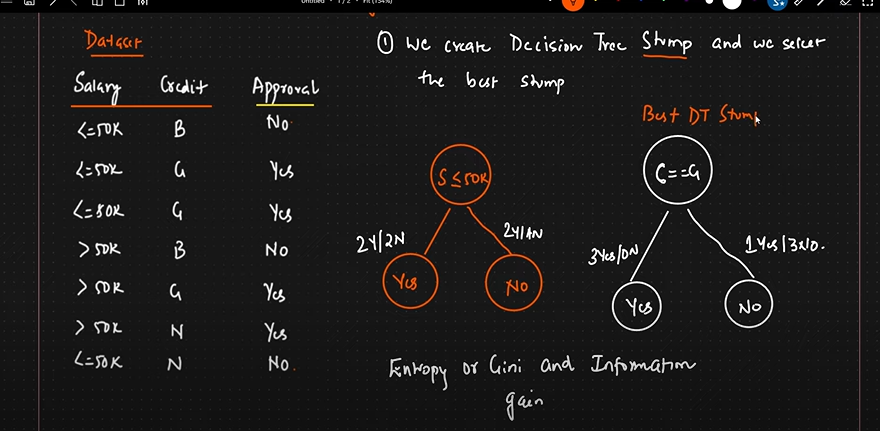 Untitled • 1 / 2 • Fit (154%)
Dataset
Salary Credit Approval
<=50K B No
<=50K G Yes
<=50K G Yes
>50K B NO
>50K G Yes
>50K N Yes
<=50K N NO.
① We create Decision Tree Stump and we select
the best stump
S ≤ 50K
2Y/2N
2Y/1N
Yes
NO
Best DT Stump
C==G
3Yes/0N
1Yes/3NO.
Yes
NO
Entropy or Gini and Information
gain